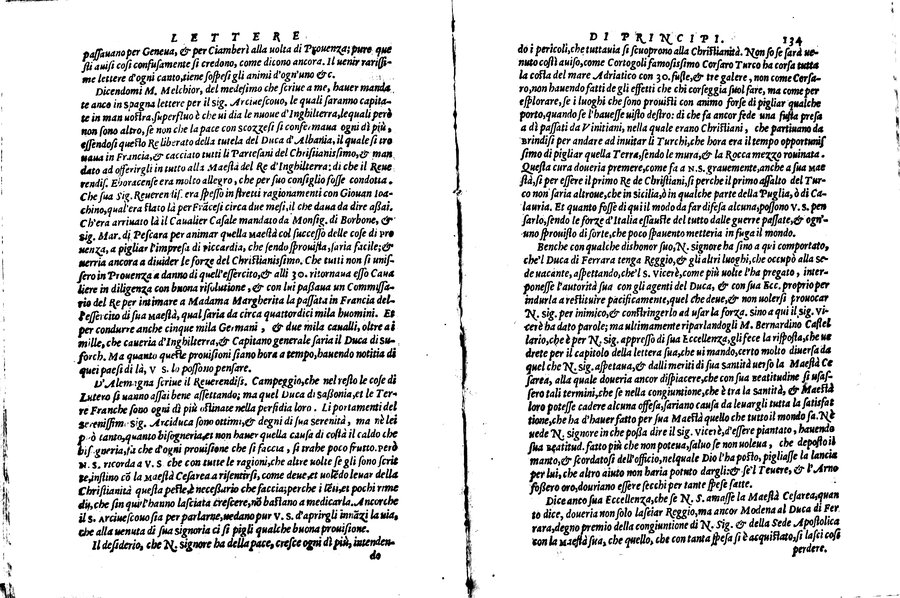 LETTERE
passauano per Geneua, & per Ciamberì alla uolta di Prouenza; pure que
sti auisi così confusamente si credono, come dicono ancora. Il uenir rarissi-
me lettere d'ogni canto, tiene sospesi gli animi d'ogn'uno &c.
Dicendomi M. Melchior, del medesimo che scriue a me, hauer manda
te anco in Spagna lettere per il sig. Arciuescouo, le quali saranno capita-
te in man uostra, superfluo è che ui dia le nuoue d'Inghilterra, lequali però
non sono altro, se non che la pace con scozzesi si confermaua ogni dì più,
essendosi questo Re liberato della tutela del Duca d'Albania, il quale si tro
uaua in Francia, & cacciato tutti li Partesani del Christianissimo, & man
dato ad offerirgli in tutto alla Maestà del Re d'Inghilterra: di che il Reue
rendiss. Eboracense era molto allegro, che per suo consiglio fosse condotta.
Che sua Sig. Reuerendiss. era spesso in stretti ragionamenti con Giouan Ioa-
chino, qual'era stato là per Fräcesi circa due mesi, il che daua da dire assai.
Ch'era arriuato là il Caualier Casale mandato da Monsig. di Borbone, &
sig. Mar. di Pescara per animar quella maestà col successo delle cose di Pro
uenza, a pigliar l'impresa di Piccardia, che sendo sprouista, saria facile; &
uerria ancora a diuider le forze del Christianissimo. Che tutti non si unis-
sero in Prouenza a danno di quell'essercito, & alli 30. ritornaua esso Caua
liere in diligenza con buona risolutione, & con lui passaua un Commissa-
rio del Re per intimare a Madama Margherita la passata in Francia del-
l'essercito di sua Maestà, qual saria da circa quattordici mila huomini. Et
per condurre anche cinque mila Germani, & due mila caualli, oltre ai
mille, che caueria d'Inghilterra, & Capitano generale saria il Duca di Su-
forch. Ma quanto queste prouisioni siano hora a tempo, hauendo notitia di
quei paesi di là, V S. lo possono pensare.
D'Alemagna scriue il Reuerendiss. Campeggio, che nel resto le cose di
Lutero si uanno assai bene assettando; ma quel Duca di Sassonia, et le Ter-
re Franche sono ogni dì più ostinate nella perfidia loro. Li portamenti del
serenissimo sig. Arciduca sono ottimi, & degni di sua serenità, ma nè lei
può tanto, quanto bisogneria, et non hauer quella causa di costà il caldo che
bisogneria, fa che d'ogni prouisione che si faccia, si trahe poco frutto. però
N. S. ricorda a V S che con tutte le ragioni, che altre uolte se gli sono scrit
te, instino cõ la Maestà Cesarea a risentirsi, come deue, et uolëdo leuar della
Christianità questa peste, è necessario che faccia; perche i lëti, et pochi rime
dij, che sin qui l'hanno lasciata crescere, nõ bastano a medicarla. Ancorche
il S. Arciuescouo sia per parlarne, uedano pur V S. d'aprirgli innãzi la uia,
che alla uenuta di sua signoria ci si pigli qualche buona prouisione.
Il desiderio, che N. signore ha della pace, cresce ogni dì più, intenden-
do
DI PRINCIPI. 134
do i pericoli, che tuttauia si scuoprono alla Christianità. Non so se sarà ue-
nuto costì auiso, come Cortogoli famosissimo Corsaro Turco ha corsa tutta
la costa del mare Adriatico con 30. fuste, & tre galere, non come Corsa-
ro, non hauendo fatti de gli effetti che chi corseggia suol fare, ma come per
esplorare, se i luoghi che sono prouisti con animo forse di pigliar qualche
porto, quando se l'hauesse uisto destro: di che fa ancor fede una fusta presa
a dì passati da Vinitiani, nella quale erano Christiani, che partiuano da
Brindisi per andare ad inuitar li Turchi, che hora era il tempo opportunis
simo di pigliar quella Terra, sendo le mura, & la Rocca mezzo rouinata.
Questa cura doueria premere, come fa a N.S. grauemente, anche a sua mae
stà, si per essere il primo Re de Christiani, sì perche il primo assalto del Tur
co non saria altroue, che in sicilia, ò in qualche parte della Puglia, ò di Ca-
lauria. Et quanto fosse di quel modo da far difesa alcuna; possono V S. pen
sarlo, sendo le forze d'Italia essauste del tutto dalle guerre passate, & ogn'-
uno sprouisto di sorte, che poco spauento metteria in fuga il mondo.
Benche con qualche dishonor suo, N. signore ha sino a qui comportato,
che'l Duca di Ferrara tenga Reggio, & gli altri luoghi, che occupò alla se-
de uacante, aspettando, che'l S. Vicerè, come più uolte l'ha pregato, inter-
ponesse l'autorità sua con gli agenti del Duca, & con sua Ecc. proprio per
indurla a restituire pacificamente, quel che deue, & non uolersi prouocar
N. sig. per inimico, & constringerlo ad usar la forza. sino a qui il sig. vi-
cerè ha dato parole; ma ultimamente riparlandogli M. Bernardino Castel
lario, che è per N. sig. appresso di sua Eccellenza, gli fece la risposta, che ue
drete per il capitolo della lettera sua, che ui mando, certo molto diuersa da
quel che N. sig. aspettaua, & dalli meriti di sua santità uerso la Maestà Ce
sarea, alla quale doueria ancor dispiacere, che con sua Beatitudine si usas-
sero tali termini, che se nella congiuntione, che è tra la santità, & Maestà
loro potesse cadere alcuna offesa, sariano causa da leuargli tutta la satisfat
tione, che ha d'hauer fatto per Maestà quello che tutto il mondo sa. Nè
uede N. signore in che possa dire il sig. vicerè, d'essere piantato, hauendo
sua Beatitud. fatto più che non poteua, saluo se non uoleua, che deposto il
manto, & scordatosi dell'officio, nel quale Dio l'ha posto, pigliasse la lancia
per lui, che altro aiuto non haria potuto dargli: & se'l Teuere, & l'Arno
fossero oro, douriano essere secchi per tante spese fatte.
Dice anco sua Eccellenza, che se N S. amasse la Maestà Cesarea, quan
to dice, doueria non solo lasciar Reggio, ma ancor Modena al Duca di Fer
rara, degno premio della congiuntione di N. Sig. & della Sede Apostolica
con la Maestà sua, che quello, che con tanta spesa si è acquistato, si lasci così
perdere.